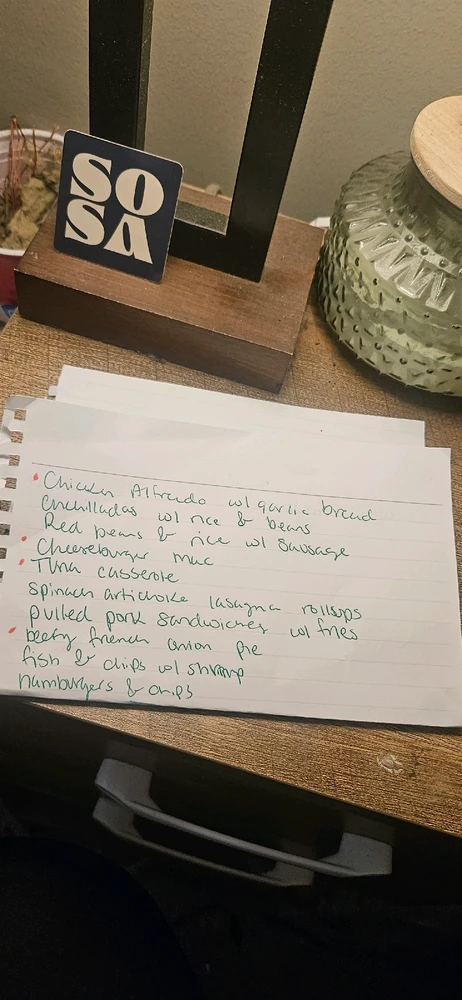 SO
SA
Chicken Alfredo w/ garlic bread
Enchilladas w/ rice & beans
Red beans & rice w/ sausage
Cheeseburger mac
Tuna casserole
spinach artichoke lasagna rollups
pulled pork sandwiches w/ fries
beefy french onion pie
fish & chips w/ shrimp
hamburgers & chips